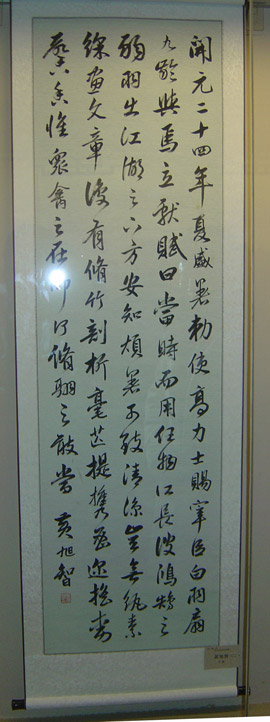 開元二十四年夏盛暑勅使高力士賜宰臣白羽扇
九齡與焉立獻賦曰當時而用任物所長彼鴻鵠之
弱羽出江湖之下方安知煩暑可致清涼豈無紈素
綵畫文章復有脩竹剖析毫芒提携密邇搖動
馨香惟眾禽之在御何脩翮之敢當 黃旭智